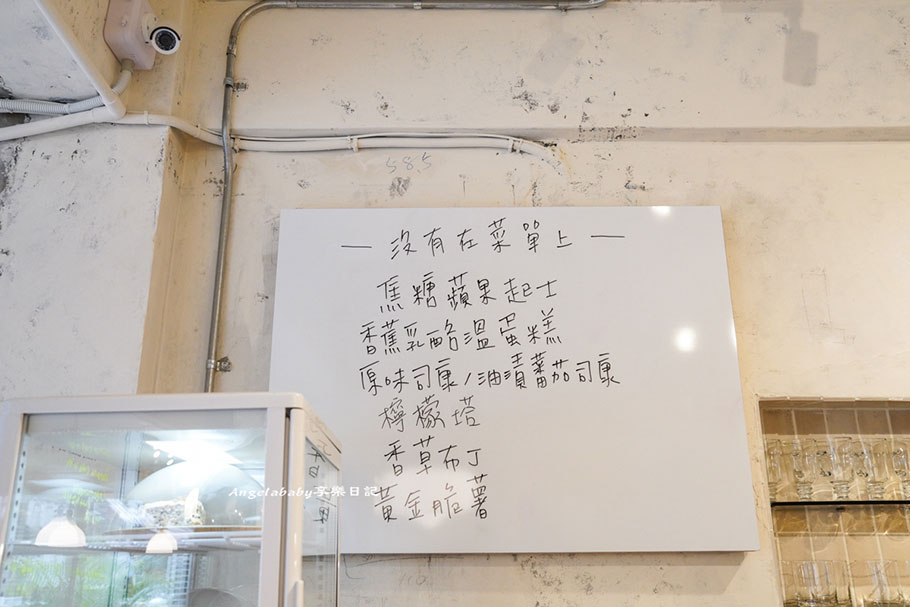 585
— 沒有在菜單上 —
焦糖蘋果起士
香蕉乳酪溫蛋糕
原味司康/油漬蕃茄司康
檸檬塔
香草布丁
黃金脆薯
Angelababy享樂日記